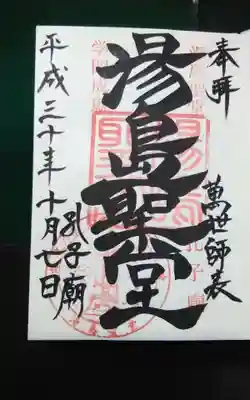 奉拝
萬世師表
湯島聖堂
孔子廟
平成三十年十月七日